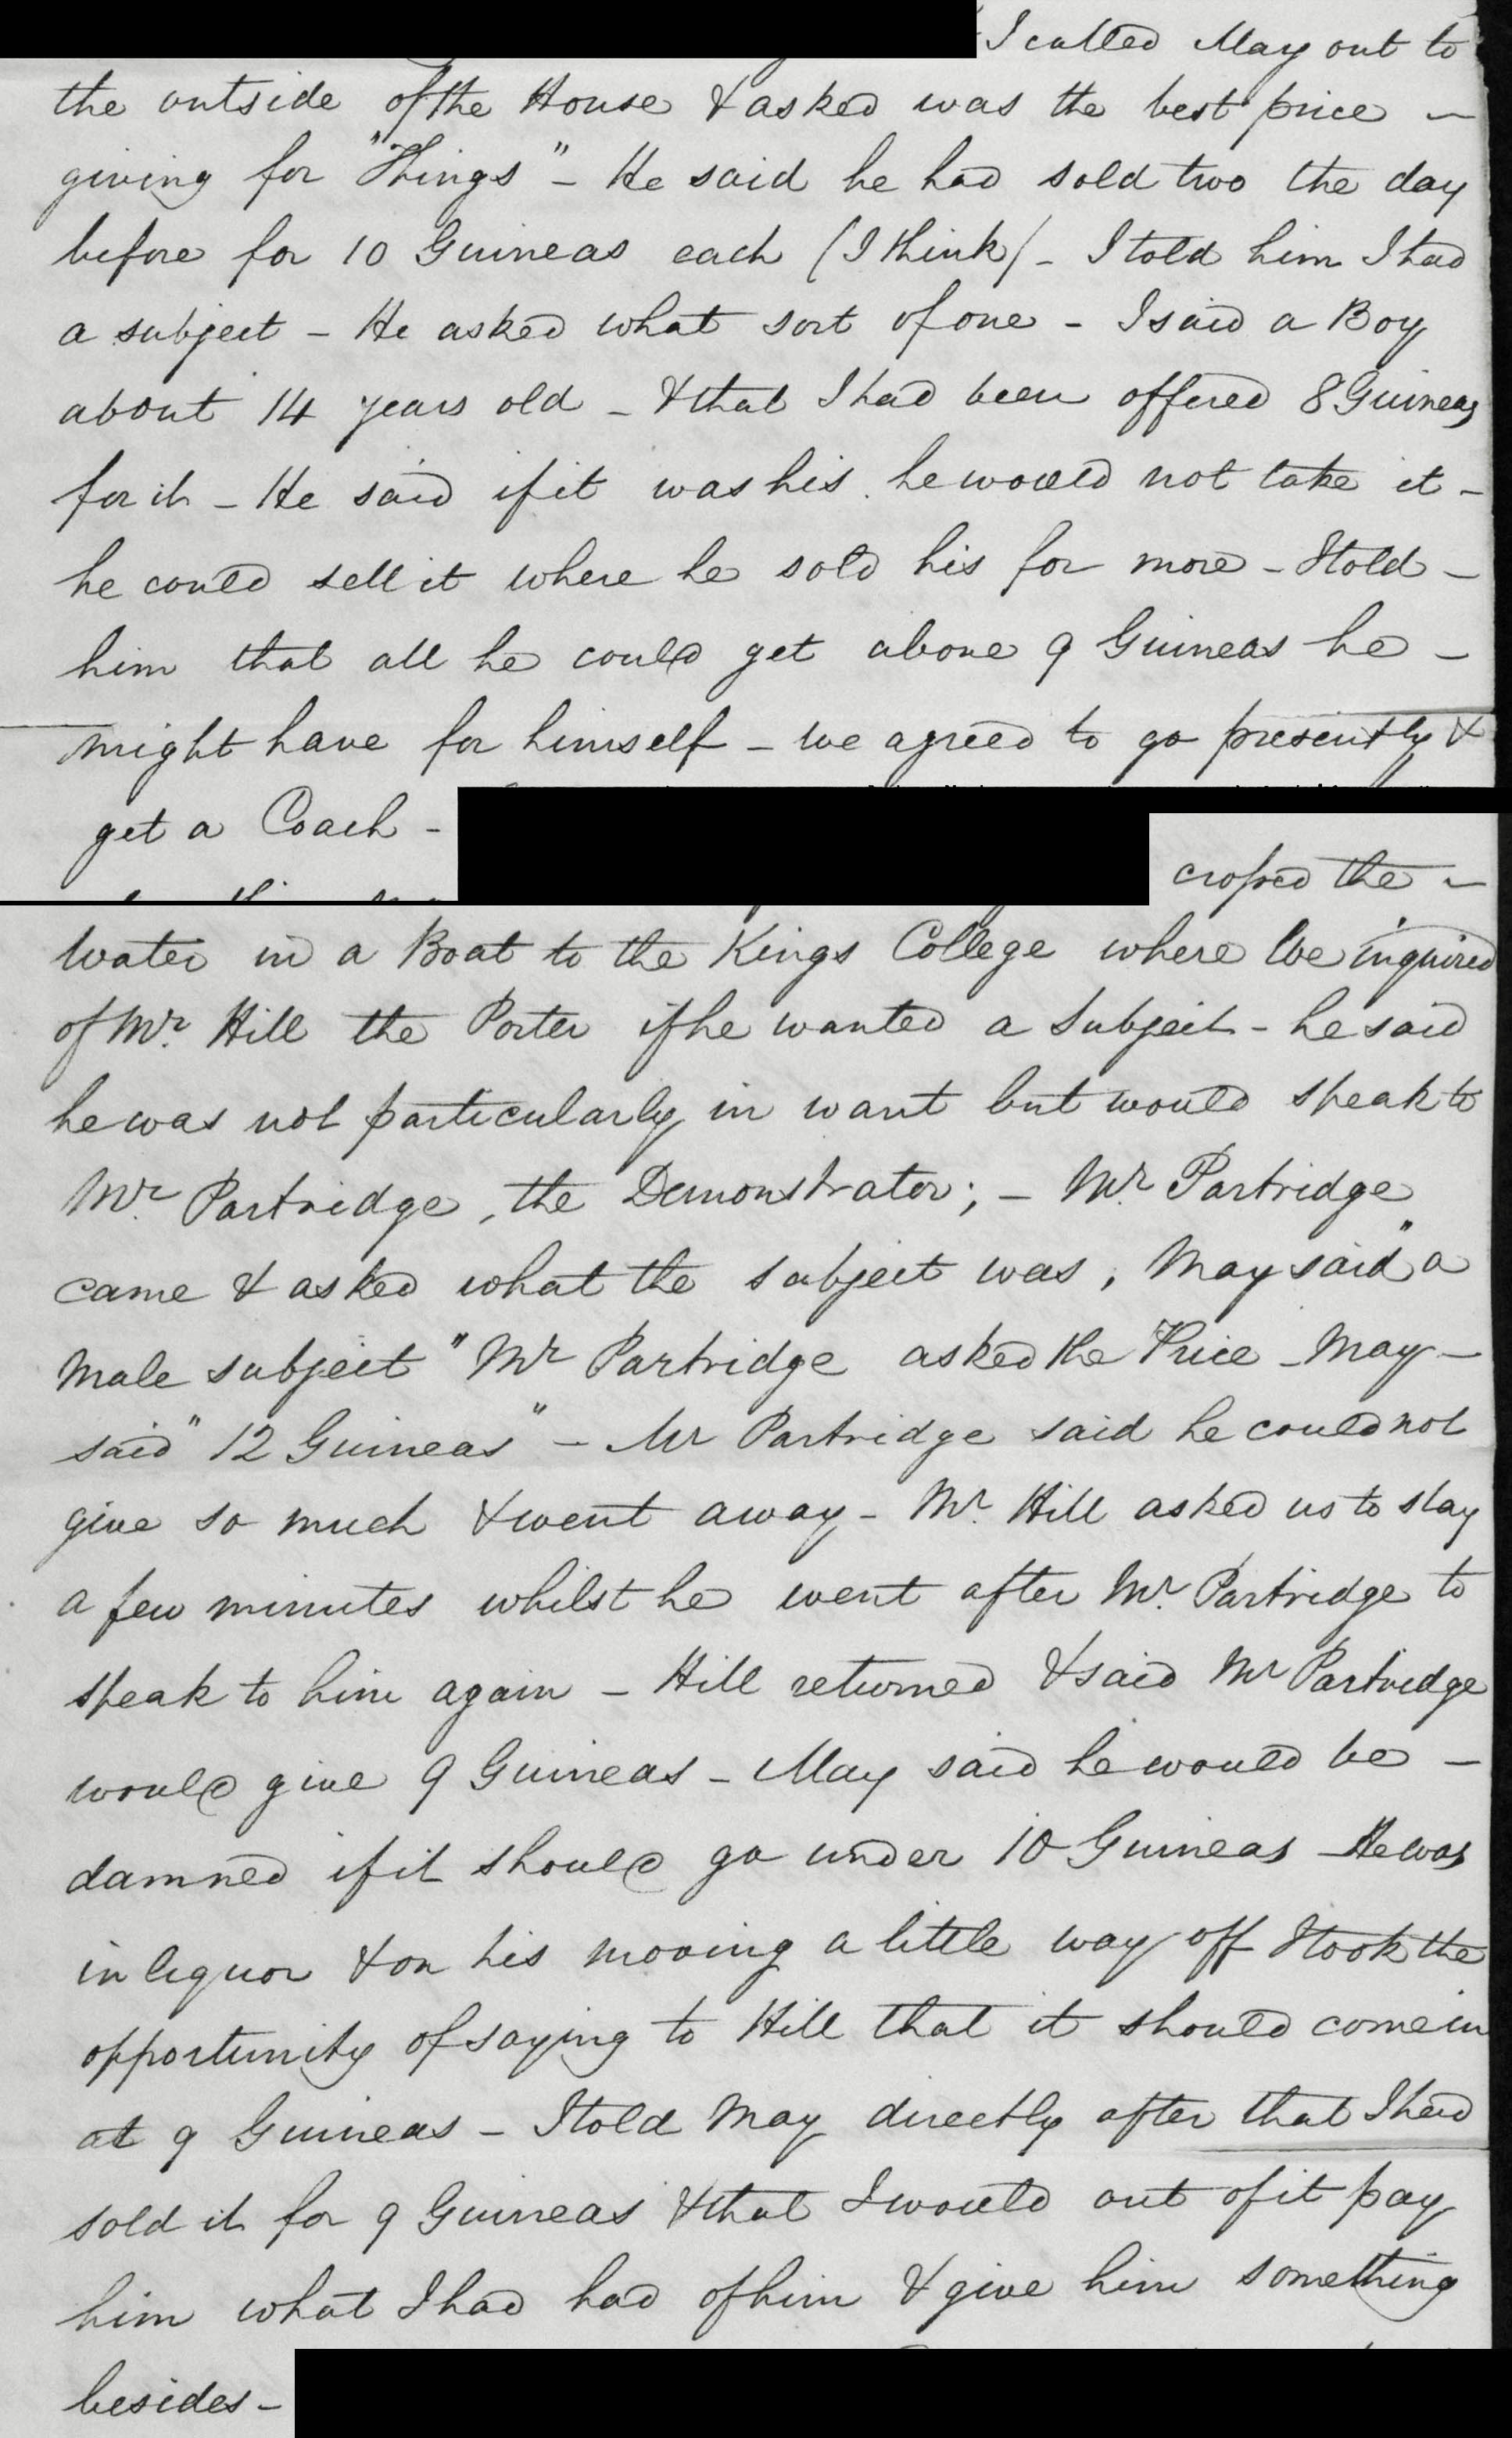 I called May out to
the outside of the House & asked was the best price -
giving for "Things" - He said he had sold two the day
before for 10 Guineas each (I think) - I told him I had
a subject - He asked what sort of one - I said a Boy
about 14 years old - & that I had been offered 8 Guineas
for it - He said if it was his he would not take it -
he could sell it where he sold his for more - I told -
him that all he could get above 9 Guineas he -
might have for himself - we agreed to go presently &
get a Coach -
crossed the -
Water in a Boat to the Kings College where We inquired
of Mr. Hill the Porter if he wanted a Subject - he said
he was not particularly in want but would speak to
Mr. Partridge, the Demonstrator; - Mr. Partridge
came & asked what the subject was, May said "a
Male subject" Mr Partridge asked the Price - May -
said "12 Guineas" - Mr Partridge said he could not
give so much & went away - Mr. Hill asked us to stay
a few minutes whilst he went after Mr. Partridge to
speak to him again - Hill returned & said Mr Partridge
would give 9 Guineas - May said he would be -
damned if it should go under 10 Guineas - He was
in liquor & on his moving a little way off I took the
opportunity of saying to Hill that it should come in
at 9 Guineas - I told May directly after that I had
sold it for 9 Guineas & that I would out of it pay
him what I had had of him & give him something
besides -